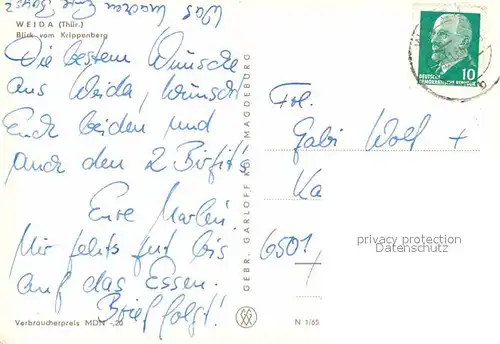 Was machen Eure
WEIDA (Thür.)
Blick vom Krippenberg
Die besten Wünsche
aus Weida, wünscht
Euch beiden und
auch den 2
Eure Marlen.
Mir gehts gut bis
auf das Essen.
Brief folgt!
Verbraucherpreis MDN -,20
GEBR. GARLOFF KG. MAGDEBURG
N 1/65
DEUTSCHE
DEMOKRATISCHE REPUBLIK
10
Frl.
Gabi Wolf +
Ka
6501
privacy protection
Datenschutz